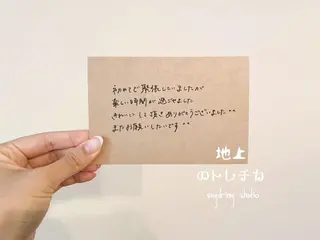 初めてで緊張していましたが
楽しい時間が過ごせました
きれいにして頂きありがとうございました**
またお願いしたいです**
地上
のトレチカ